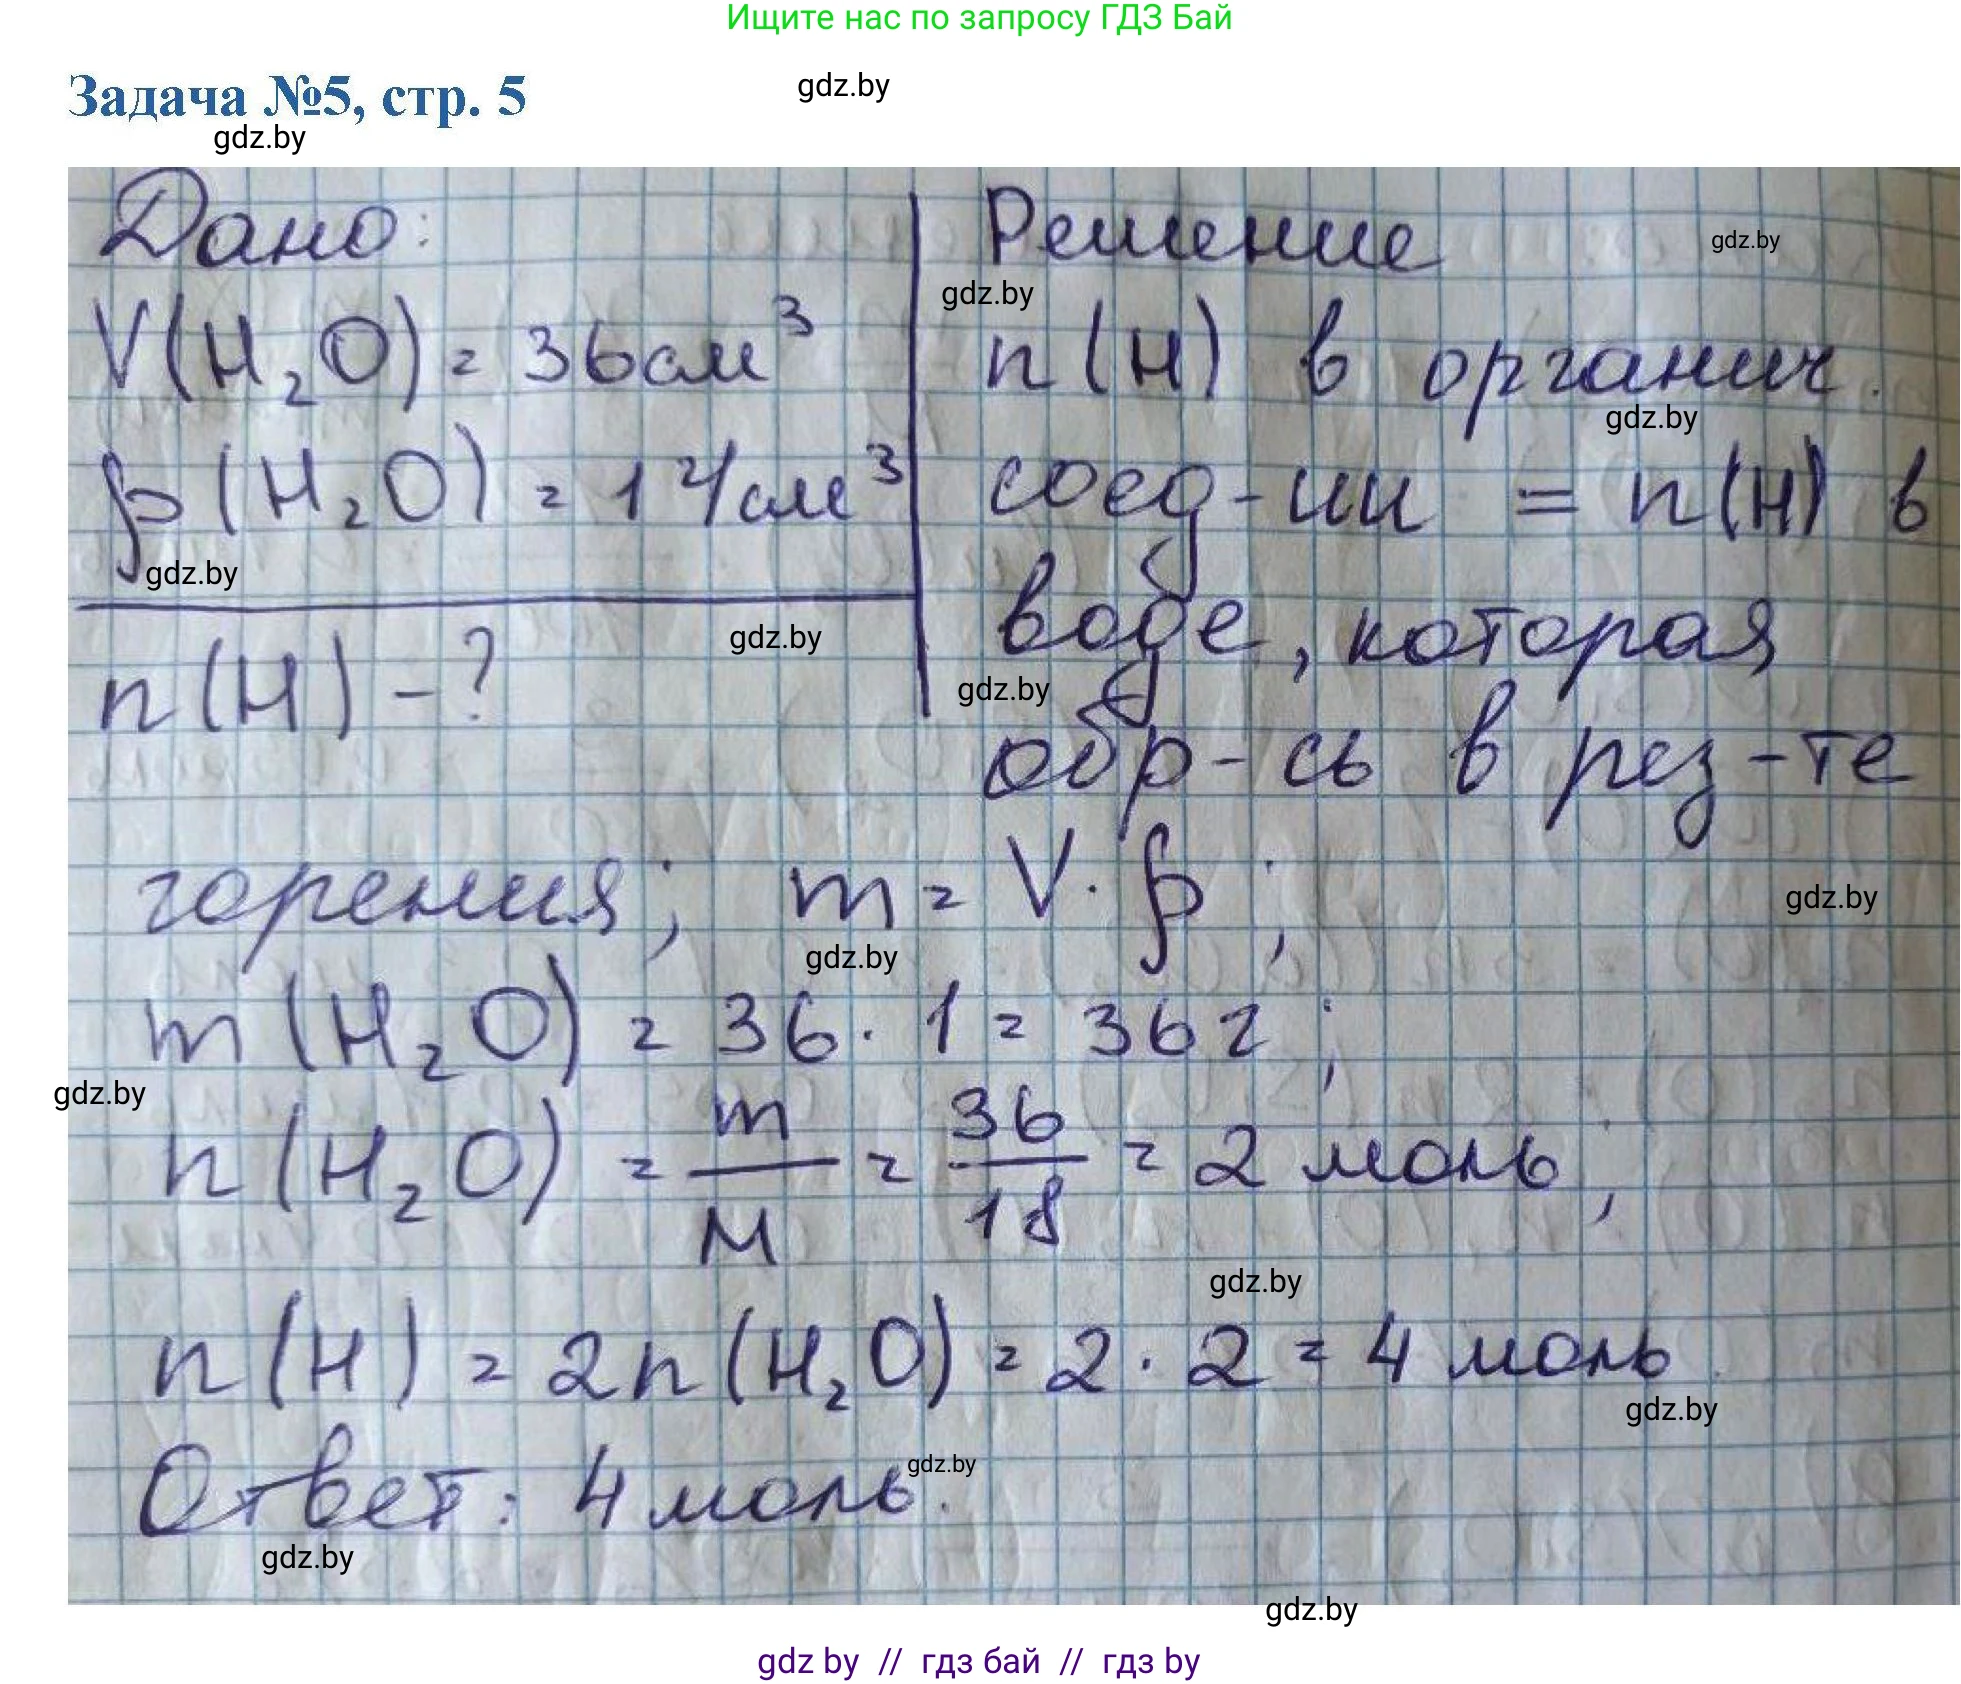 Ищите нас по запросу ГДЗ Бай
Задача №5, стр. 5
gdz.by
gdz.by
Дано:
V(H₂O) = 36см³
ρ(H₂O) = 1 г/см³
n(H) - ?
Решение
n(H) в органич.
соед-ии = n(H) в
воде, которая
обр-сь в рез-те
горения; m = V · ρ;
m(H₂O) = 36 · 1 = 36 г;
n(H₂O) = m/M = 36/18 = 2 моль;
n(H) = 2n(H₂O) = 2 · 2 = 4 моль.
Ответ: 4 моль.
gdz.by
gdz.by
gdz.by
gdz.by
gdz.by
gdz.by
gdz.by
gdz.by
gdz.by
gdz.by
gdz.by
gdz.by
gdz.by
gdz.by
gdz by // гдз бай // гдз by